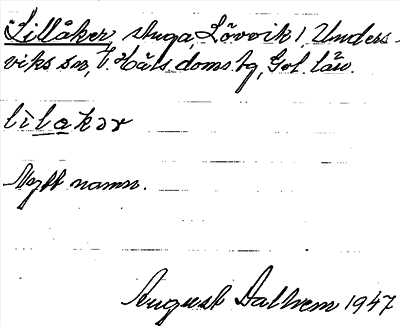 "Lillåker stuga, Lövvik 1, Unders-
viks sn, V. Häls. doms. tg, Gvl. län.
lìlakər
Nytt namn.
August Dalhem 1947